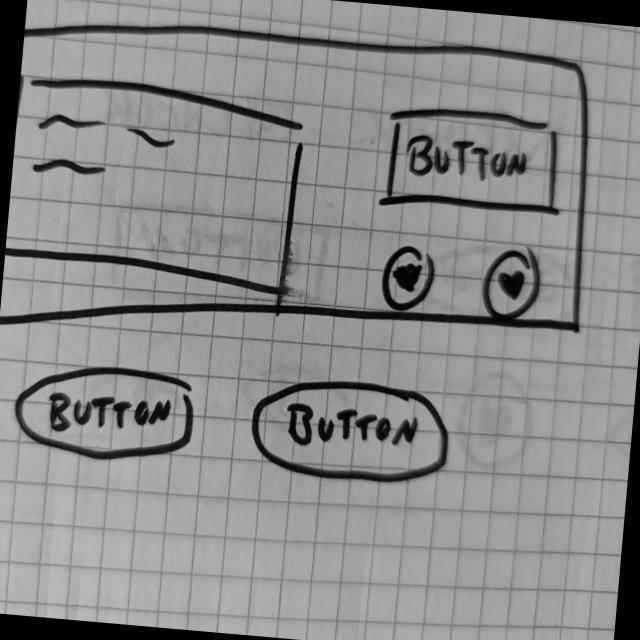 BUTTON
BUTTON
BUTTON